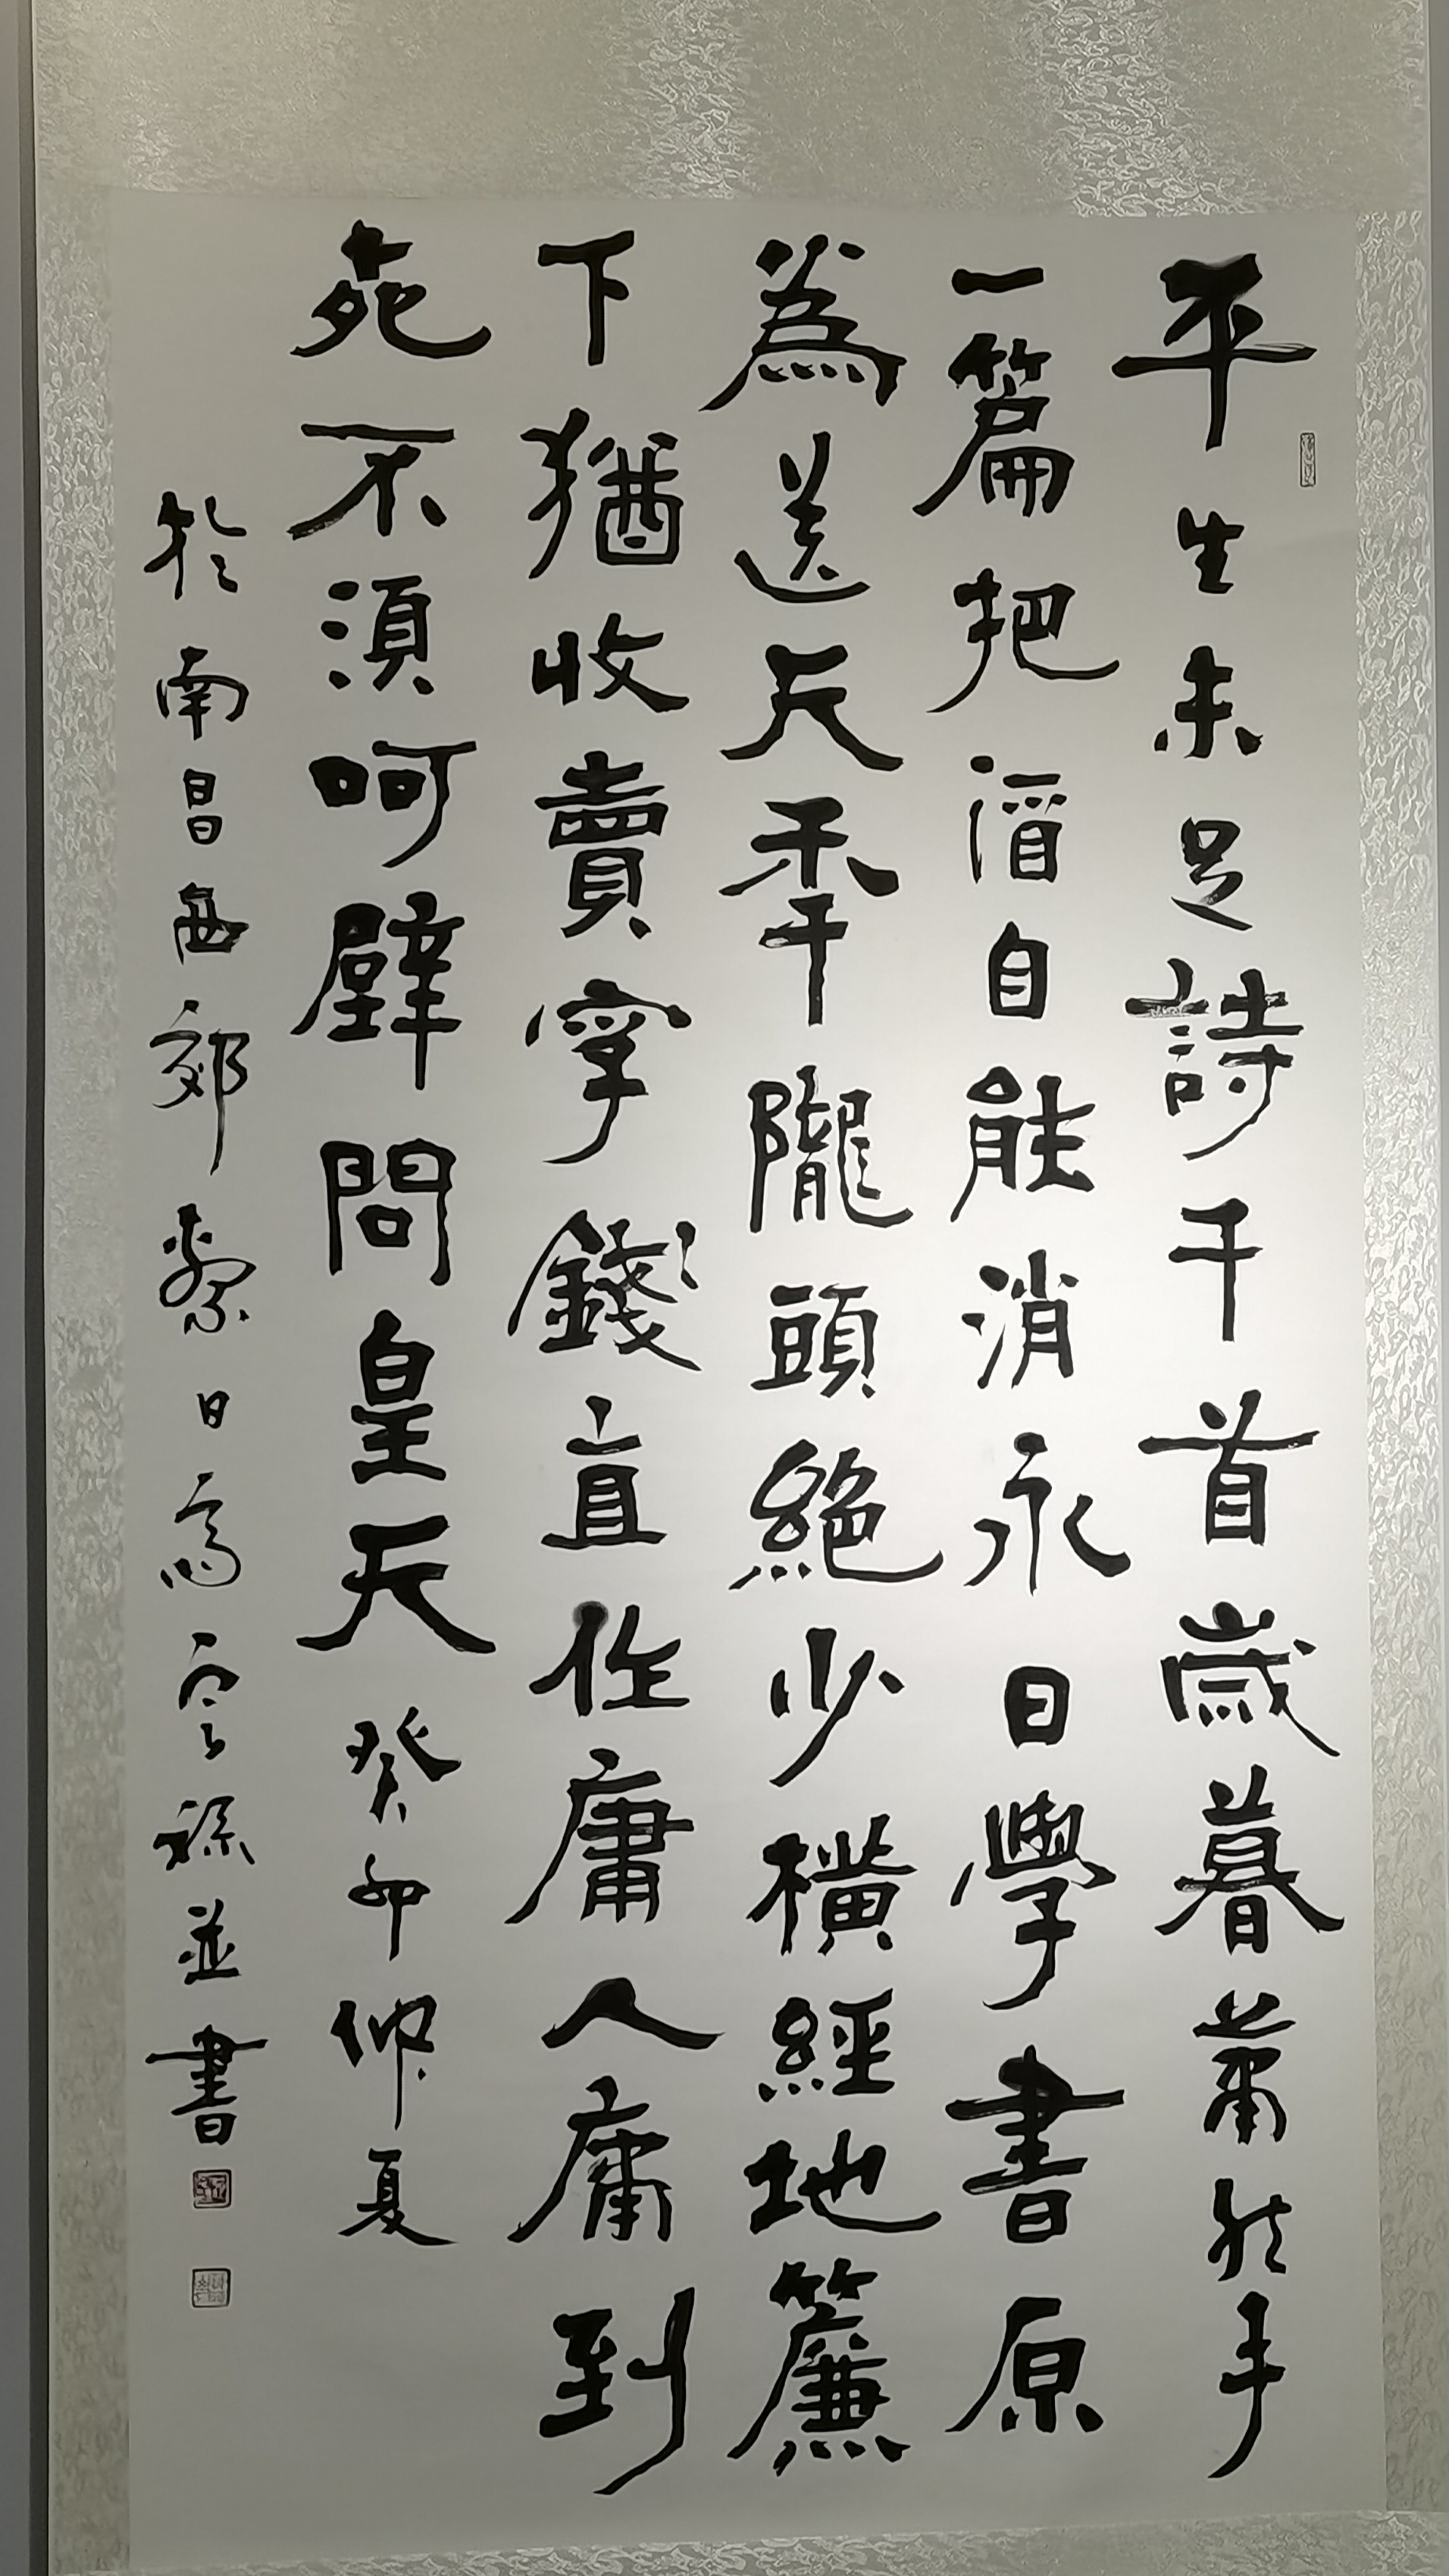 平生未足詩千首歲暮蕭然手
一篇把酒自能消永日學書原
為送天秊隴頭絕少橫經地簾
下猶收賣字錢直作庸人庸到
死不須呵壁問皇天癸卯仲夏
於南昌西郊日高並書